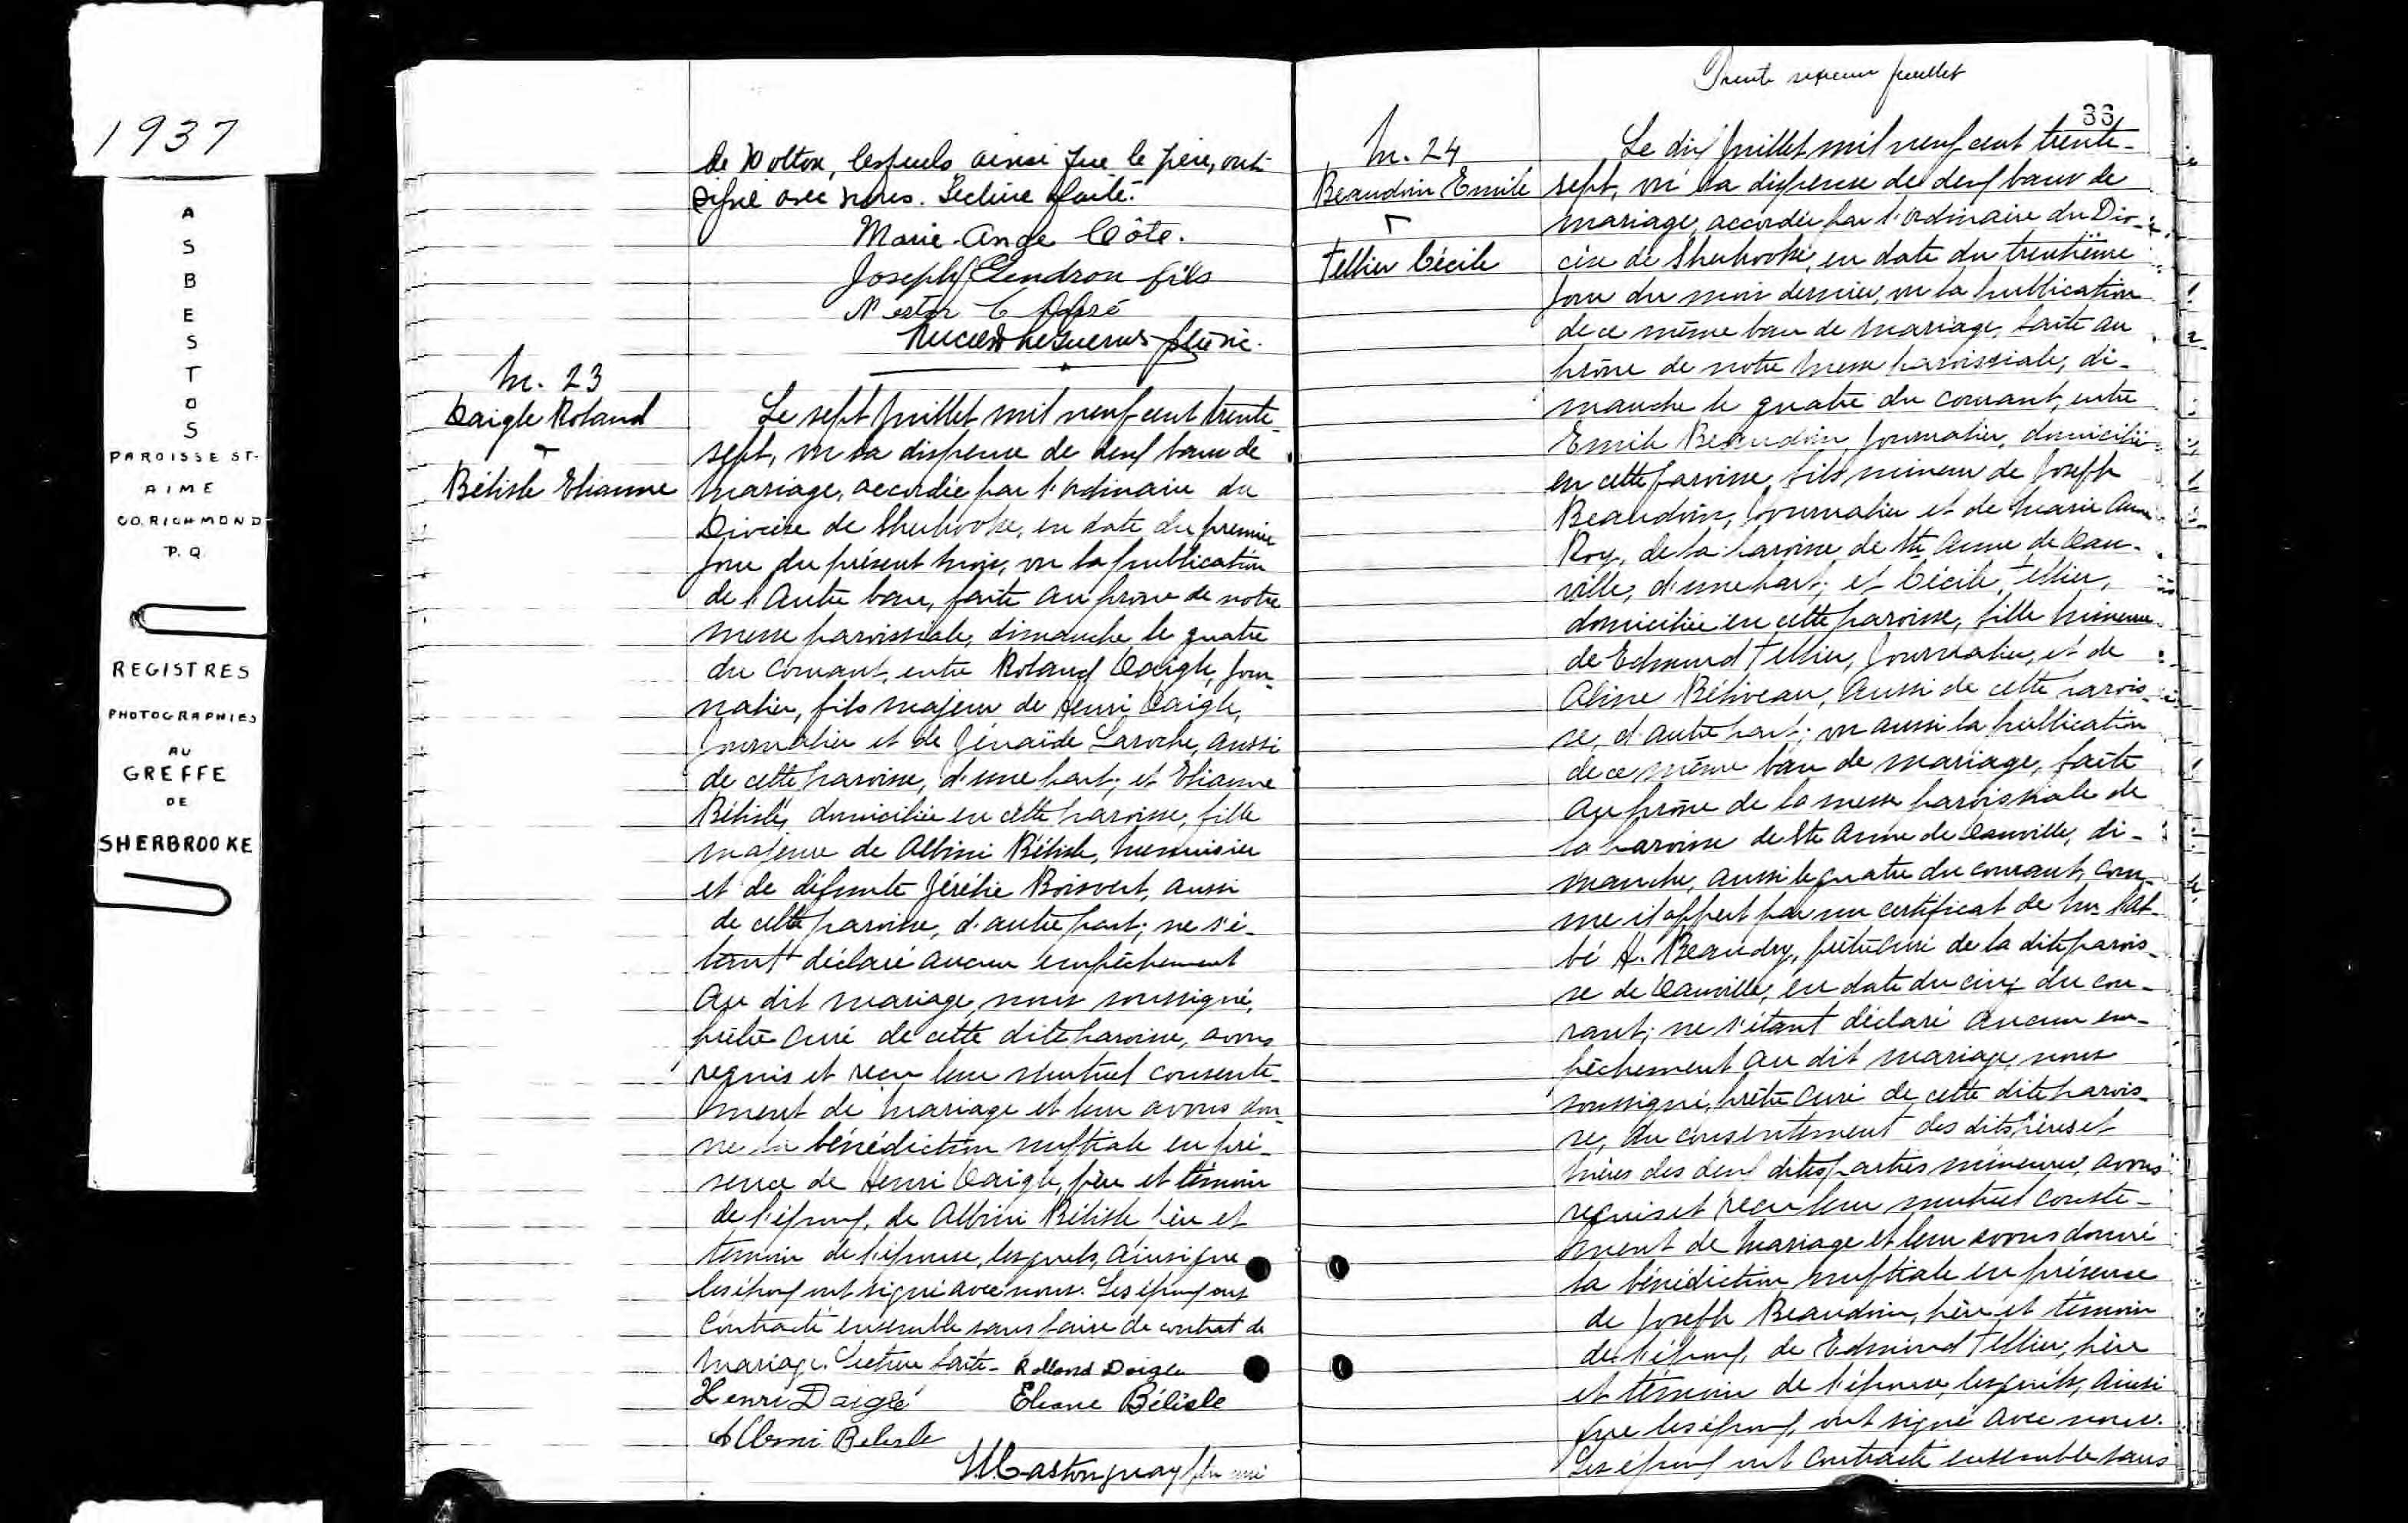 1937
A
S
B
E
S
T
O
S
PAROISSE ST-
AIME
CO. RICHMOND
P. Q.
REGISTRES
PHOTOGRAPHIES
AU
GREFFE
DE
SHERBROOKE
de Wotton, lesquels ainsi que le père, ont
signé avec nous. Lecture faite.
Marie-Ange Côté.
Joseph Gendron fils
Nestor Côté
M. 23
Daigle Roland
r
Bélisle Elianne
Le sept juillet mil neuf cent trente
sept, vu la dispense de deux bans de
mariage, accordée par l'Ordinaire du
Diocèse de Sherbrooke, en date du premier
jour du présent mois, vu la publication
de l'autre ban, faite au prône de notre
messe paroissiale, dimanche le quatre
du courant, entre Roland Daigle, jour-
nalier, fils majeur de Henri Daigle,
journalier et de Zénaïde Laroche, aussi
de cette paroisse, d'une part; et Elianne
Bélisle, domiciliée en cette paroisse, fille
majeure de Albini Bélisle, menuisier
et de défunte Zérélie Boisvert, aussi
de cette paroisse, d'autre part; ne s'é-
tant déclaré aucun empêchement
au dit mariage, nous soussigné,
prêtre curé de cette dite paroisse, avons
requis et reçu leur mutuel consente-
ment de mariage et leur avons don-
né la bénédiction nuptiale en pré-
sence de Henri Daigle, père et témoin
de l'époux, de Albini Bélisle père et
témoin de l'épouse, lesquels, ainsi que
les époux ont signé avec nous. Les époux ont
contracté ensemble sans faire de contrat de
mariage. Lecture faite- Rolland Daigle
Henri Daigle Eliane Bélisle
Albini Belisle
M Castonguay ptre curé
Trente sixième feuillet
33
M. 24
Beaudoin Emile
r
Tellier Cécile
Le dix juillet mil neuf cent trente-
sept, vu la dispense de deux bans de
mariage, accordée par l'Ordinaire du Dio-
cèse de Sherbrooke, en date du trentième
jour du mois dernier, vu la publication
de ce même ban de mariage, faite au
prône de notre messe paroissiale, di-
manche le quatre du courant, entre
Emile Beaudoin, journalier, domicilié
en cette paroisse, fils mineur de Joseph
Beaudoin, journalier et de Marie Anne
Roy, de la paroisse de Ste Anne de Dan-
ville, d'une part; et Cécile Tellier,
domiciliée en cette paroisse, fille mineure
de Edmond Tellier, journalier, et de
Aline Béliveau, aussi de cette parois-
se, d'autre part; vu aussi la publication
de ce même ban de mariage, faite
au prône de la messe paroissiale de
la paroisse de Ste Anne de Danville, di-
manche, aussi le quatre du courant, com-
me il appert par un certificat de Mr. l'ab-
bé H. Beaudry, prêtre curé de la dite parois-
se de Danville, en date du cinq du cou-
rant; ne s'étant déclaré aucun em-
pêchement au dit mariage, nous
soussigné, prêtre curé de cette dite parois-
se, du consentement des dits pères et
mères des deux dites parties mineures, avons
requis et reçu leur mutuel conste-
ment de mariage et leur avons donné
la bénédiction nuptiale en présence
de Joseph Beaudoin, père et témoin
de l'époux, de Edmond Tellier, père
et témoin de l'épouse, lesquels, ainsi
que les époux, ont signé avec nous.
Les époux ont contracté ensemble sans